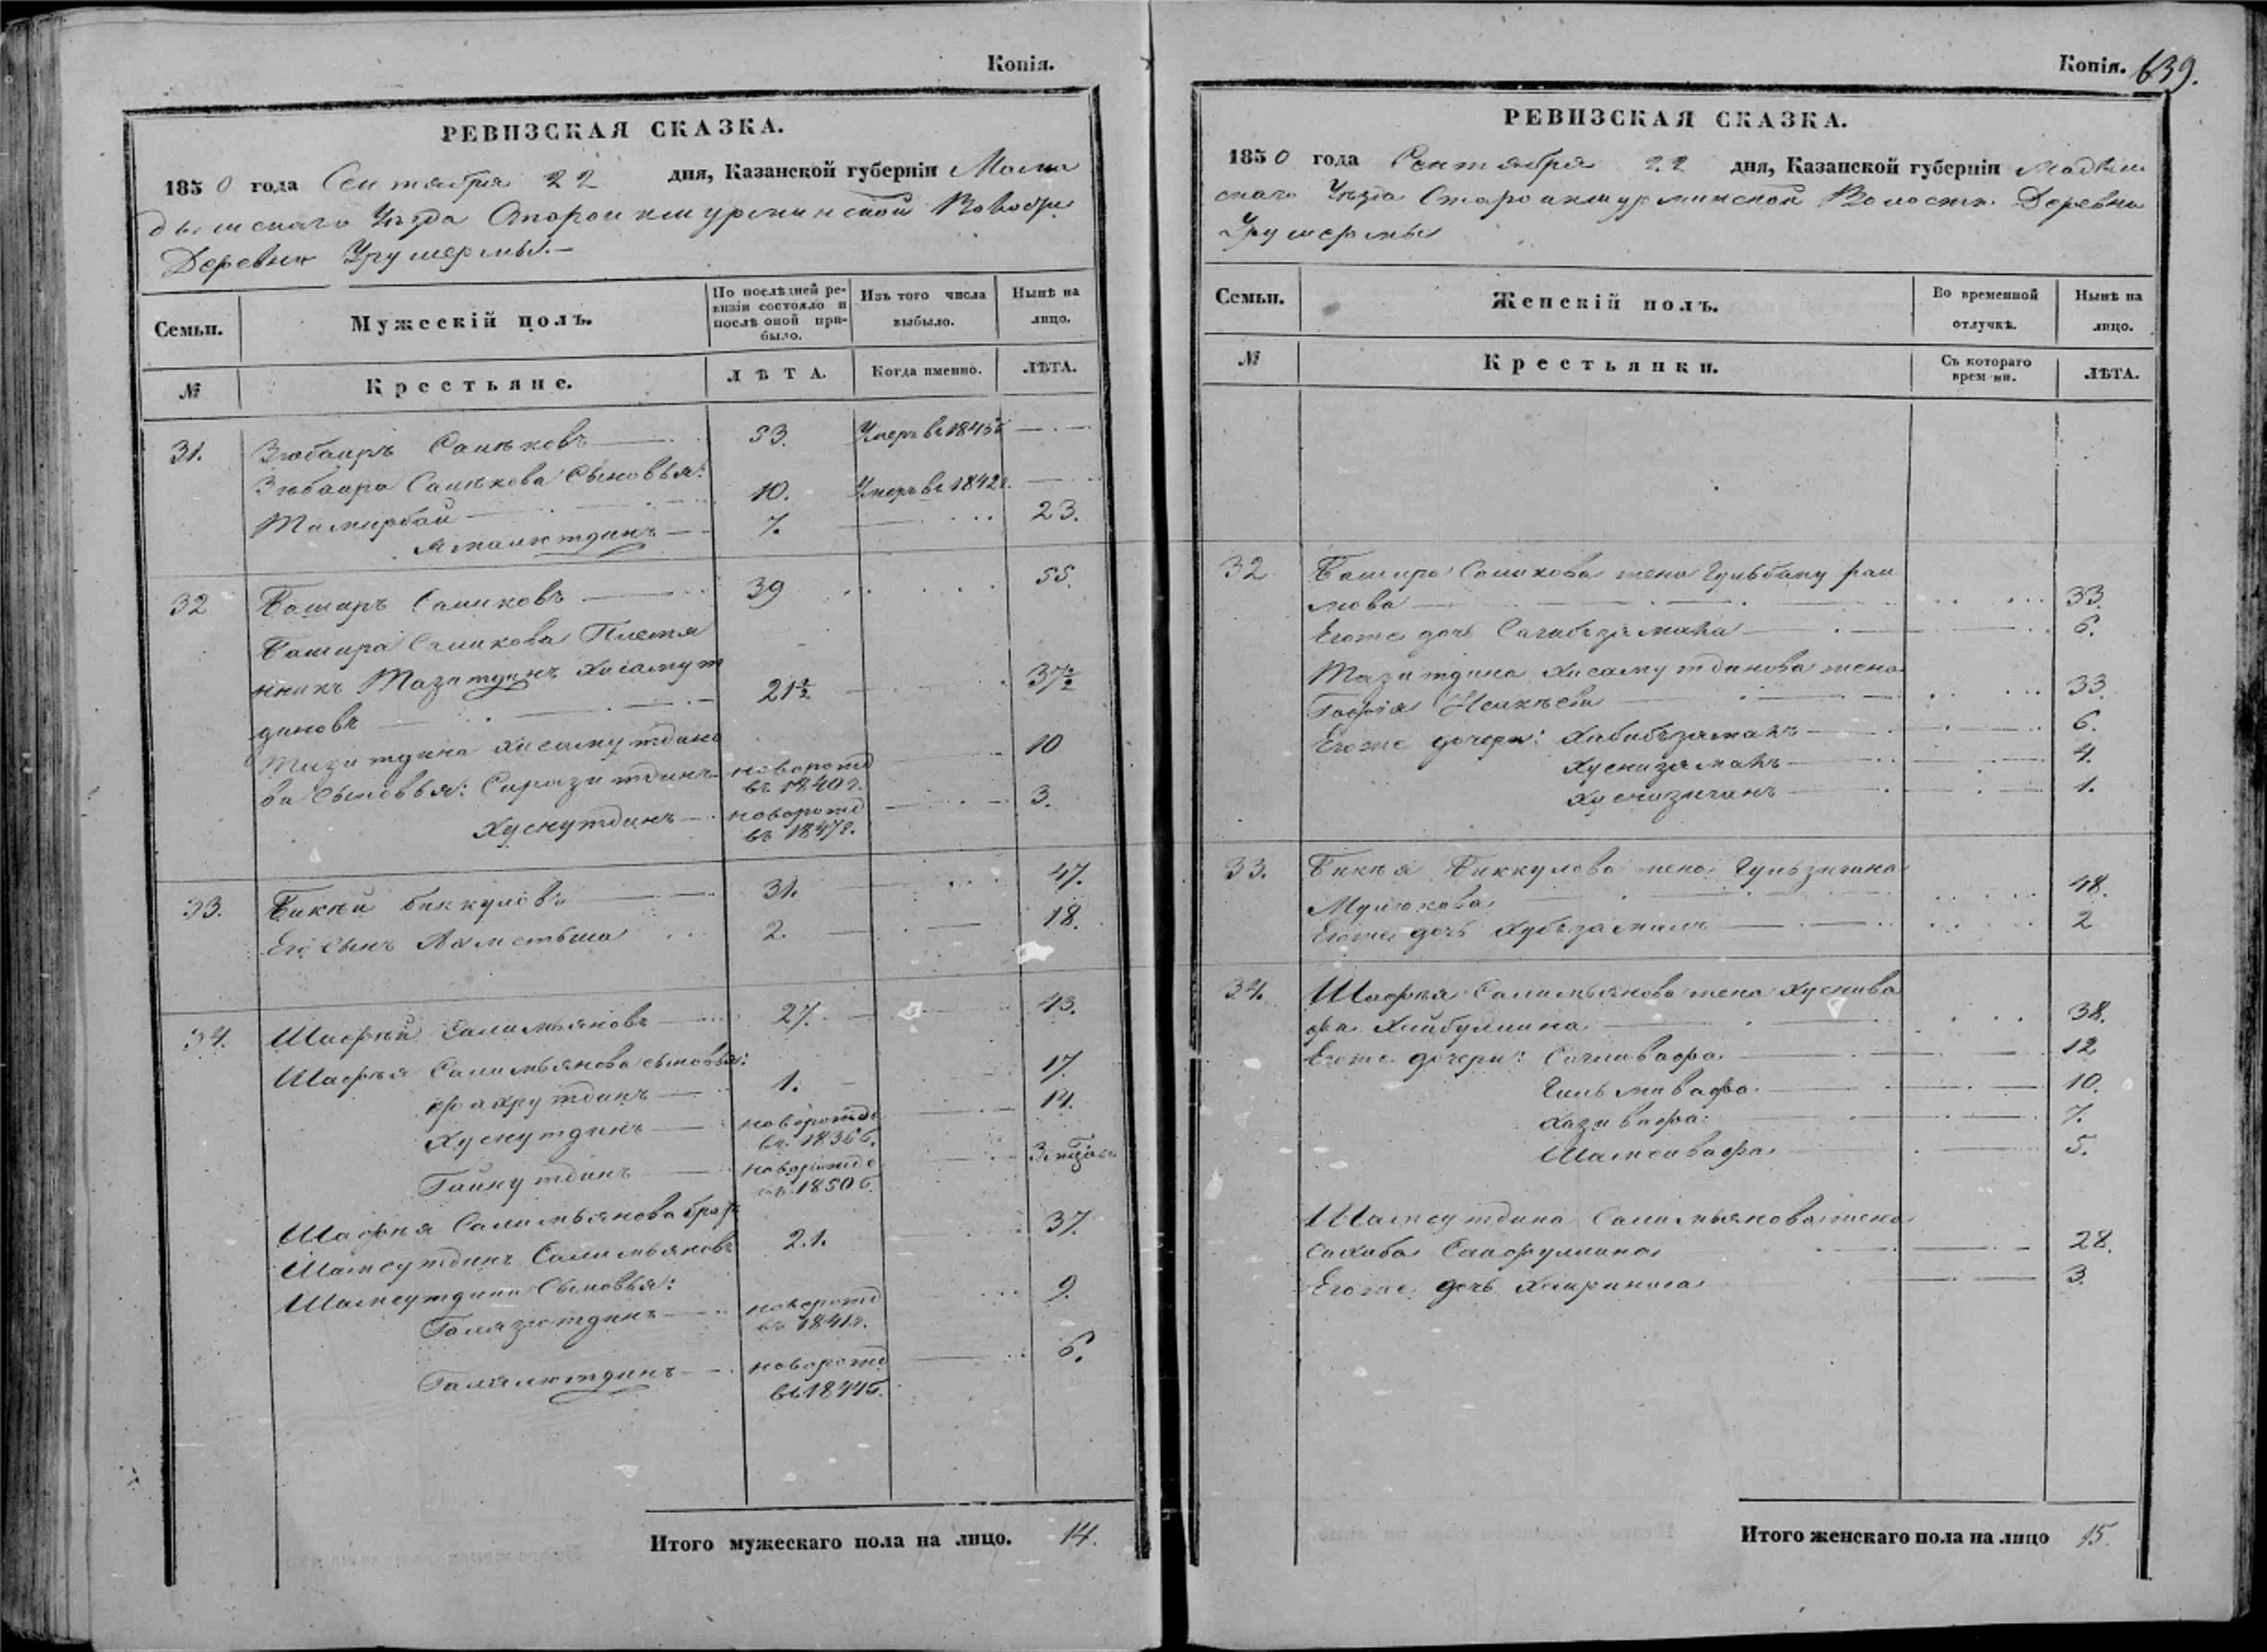 Копія.
РЕВИЗСКАЯ СКАЗКА.
1850 года Сентября 22 дня, Казанской губерніи Мама
дышскаго Уѣзда Староикшурминской Волости
Деревни Урушермы.
Семьи.
Мужескій полъ.
По послѣдней ре-
визіи состояло и
послѣ оной при-
было.
Изъ того числа
выбыло.
Нынѣ на
лицо.
№
Крестьяне.
ЛѢТА.
Когда именно.
ЛѢТА.
31. Зюбаиръ Саликовъ 53. Умеръ въ 1845
Зюбаира Саликова Сыновья:
Тимирбай 10. Умеръ въ 1842г.
Ямалютдинъ 7. 23.
32 Баширъ Саликовъ 39 55.
Башира Саликова Племя
нникъ Тазитдинъ Хисамут
диновъ 21½ 37½
Тазитдина Хисамутдино
ва Сыновья: Сиразитдинъ новорожд 10
въ 1840г.
Хуснутдинъ новорожд 3.
въ 1847г.
33. Бикѣй Биккуловъ 31. 47.
Его сынъ Ахметьша 2. 18.
34. Шафѣй Салимьяновъ 27. 43.
Шафѣя Салимьянова сыновья:
Фахрутдинъ 1. 17.
Хуснутдинъ новорожде 14.
въ 1836
Гайнутдинъ новорожде
въ 1850
Шафѣя Салимьянова братъ
Шамсутдинъ Салимьяновъ 21. 37.
Шамсутдина Сыновья:
Галязютдинъ новорожд 9.
въ 1841г.
Галялютдинъ новорожд 6.
въ 1844
Итого мужескаго пола на лицо. 14.
Копія. 639.
РЕВИЗСКАЯ СКАЗКА.
1850 года Сентября 22 дня, Казанской губерніи Мадыш
скаго Уѣзда Староикшурминской Волости Деревни
Урушермы
Семьи.
Женскій полъ.
Во временной
отлучкѣ.
Нынѣ на
лицо.
№
Крестьянки.
Съ котораго
времени.
ЛѢТА.
32 Башира Саликова жена Гульбану
33.
Егоже дочь Сагибзямала 6.
Тазитдина Хисамутдинова жена
Гафія 33.
Егоже дочери: Хабибзямалъ 6.
Хуснизямалъ 4.
Хуснизиганъ 1.
33. Бикѣя Биккулова жена Гульзигана
Мулюкова 48.
Егоже дочь Хубзямалъ 2
34. Шафѣя Салимьянова жена Хуснива
фа Хлибуллина 38.
Егоже дочери: Согливафа 12
Гильмивафа 10.
Хазивафа 7.
Шамсивафа 5.
Шамсутдина Салимьянова жена
Сахиба Сайфуллина 28.
Егоже дочь Хаириниса 3.
Итого женскаго пола на лицо 15.